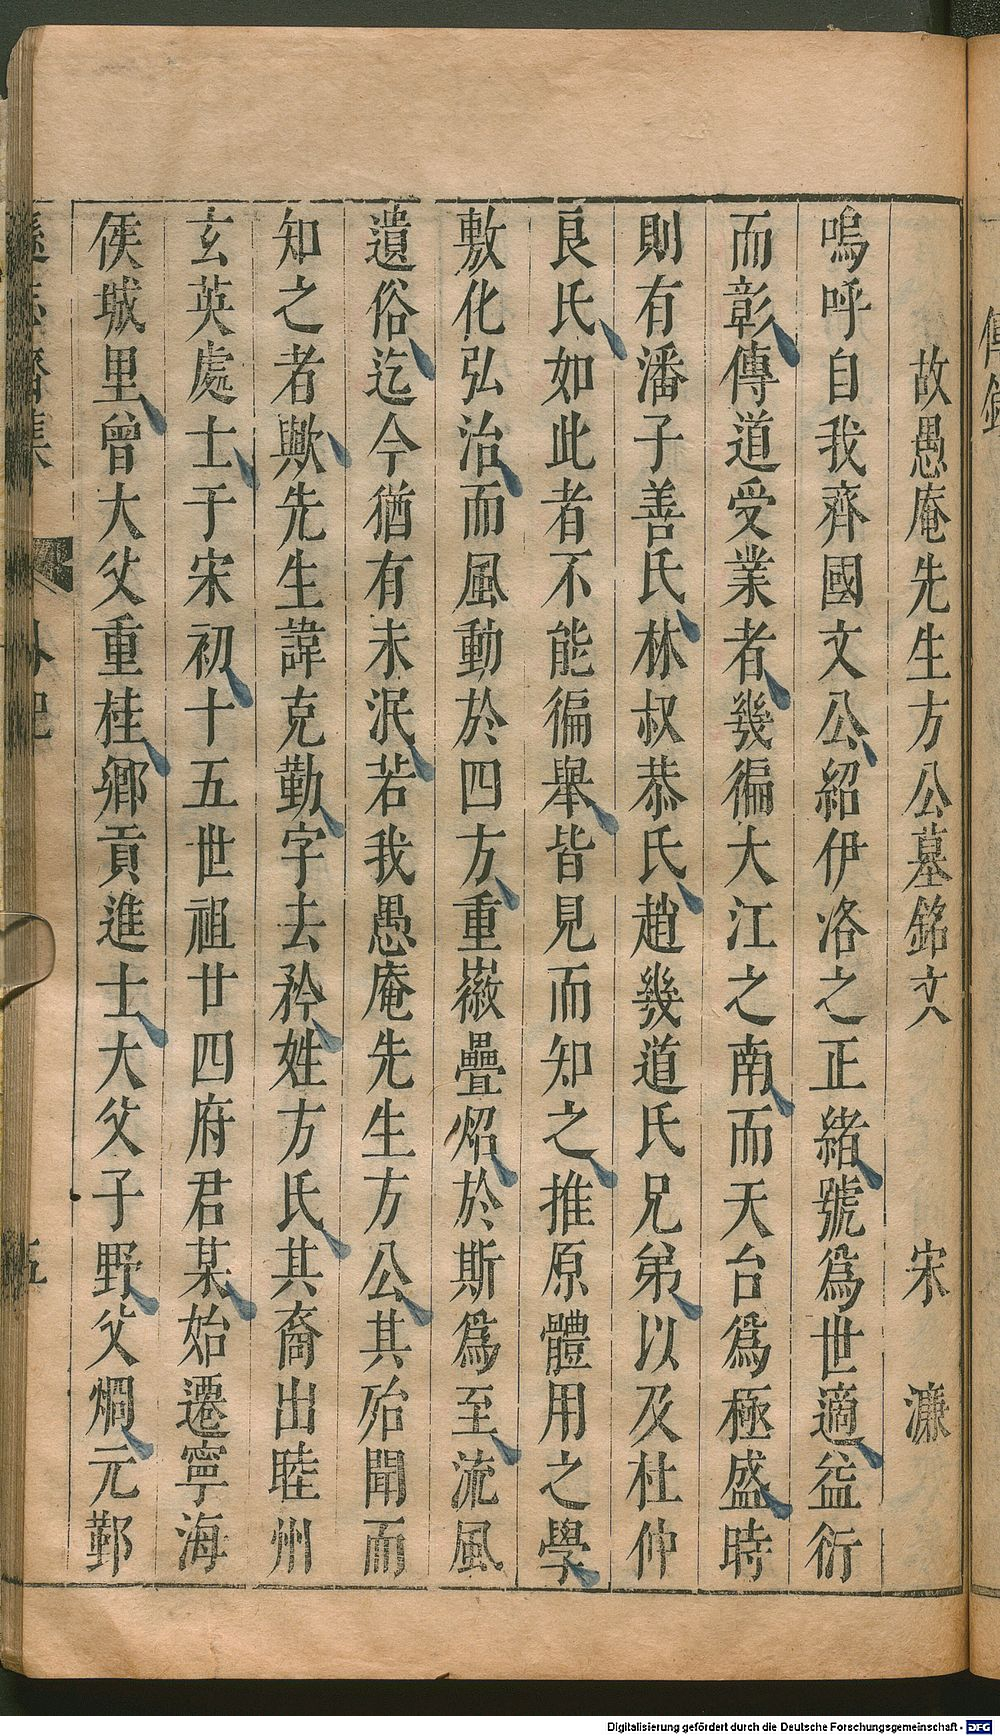 故愚庵先生方公墓銘文 宋 濂
嗚呼自我齊國文公紹伊洛之正緒號爲世適益衍
而彰傳道受業者幾徧大江之南而天台爲極盛時
則有潘子善氏林叔恭氏趙幾道氏兄弟以及杜仲
良氏如此者不能徧舉皆見而知之推原體用之學
敷化弘治而風動於四方重嶶疊炤於斯爲至流風
遺俗迄今猶有未泯若我愚庵先生方公其殆聞而
知之者歟先生諱克勤字去矜姓方氏其裔出睦州
玄英處士于宋初十五世祖廿四府君某始遷寧海
侯城里曾大父重桂鄉貢進士大父子野父烱元鄞
五
Digitalisierung gefördert durch die Deutsche Forschungsgemeinschaft - DFG